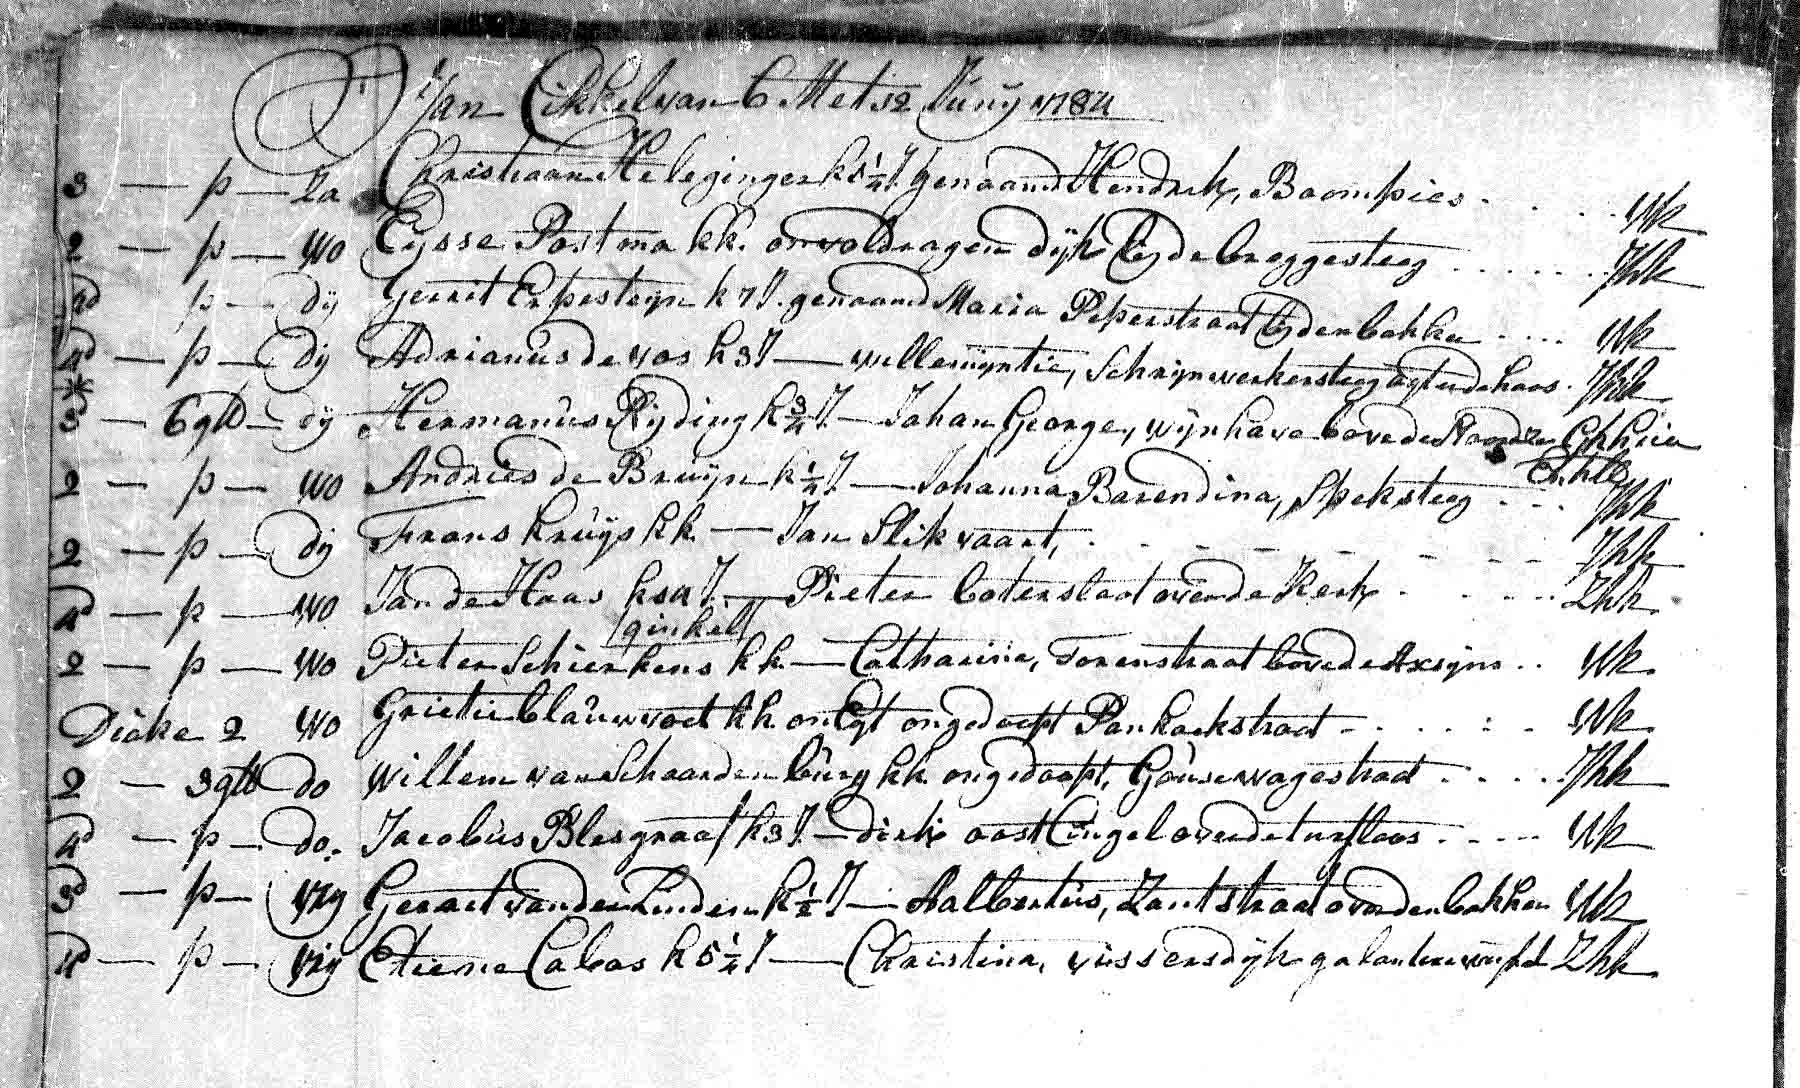 Van Cikkel van 6 Met 12 Junij 1784
3 — p — Za Christiaan Heleginger k 5 1/4 J. genaamd Hendrik, Boompies . . . . Wk
2 — p — Wo Eysse Postma kk. onvoldragen dijk bij de breggesteeg . . . . . . Zhk
4d p — dij Gerrit Erpesteijn k 7 J. genaamd Maria Peperstraat bij den bakker . . . . Wk
4d — p — dij Adrianus de vos k 3 J — willemijntie, Schrijnwerkersteeg agter de haos . Zhk
3 — 6 gld — dij Hermanus Rijding k 3/4 J. — Johan George, wijnhave bove de
2 — p — Wo Andries de Bruijn k 1/4 J. — Johanna Barendina, Speksteeg . . . Zhk
2 — p — dij Frans kruijs kk. — Jan Slikvaart, . . . . Zhk
4d — p — Wo Jan de Haas k J. — Pieter boterslaot over de Kerk . . . . Zhk
ginkel
2 — p — Wo Pieter Schierkens kk — Catharina, Torenstraat bove de Axsijns . . Wk
Diake 2 Wo Grietie blauwvoet kk ongedoopt Pankoekstraat . . . . Wk
2 — 3 gld do Willem van Schaardenburg kk ongedoopt, Gousewagestraat . . . . Zhk
4d — p — do. Jacobus Blesgraaf k 3 J. — dirk oost Cingel over de turfloos . . . . Wk
3d — p — Vrij Gerret van der Linden k 1/2 J — Aalbertus, Zantstraat over den bakker Wk
4d — p — Vrij Etiene Cabos k 5 1/4 J — Christina, vissersdijk Zhk